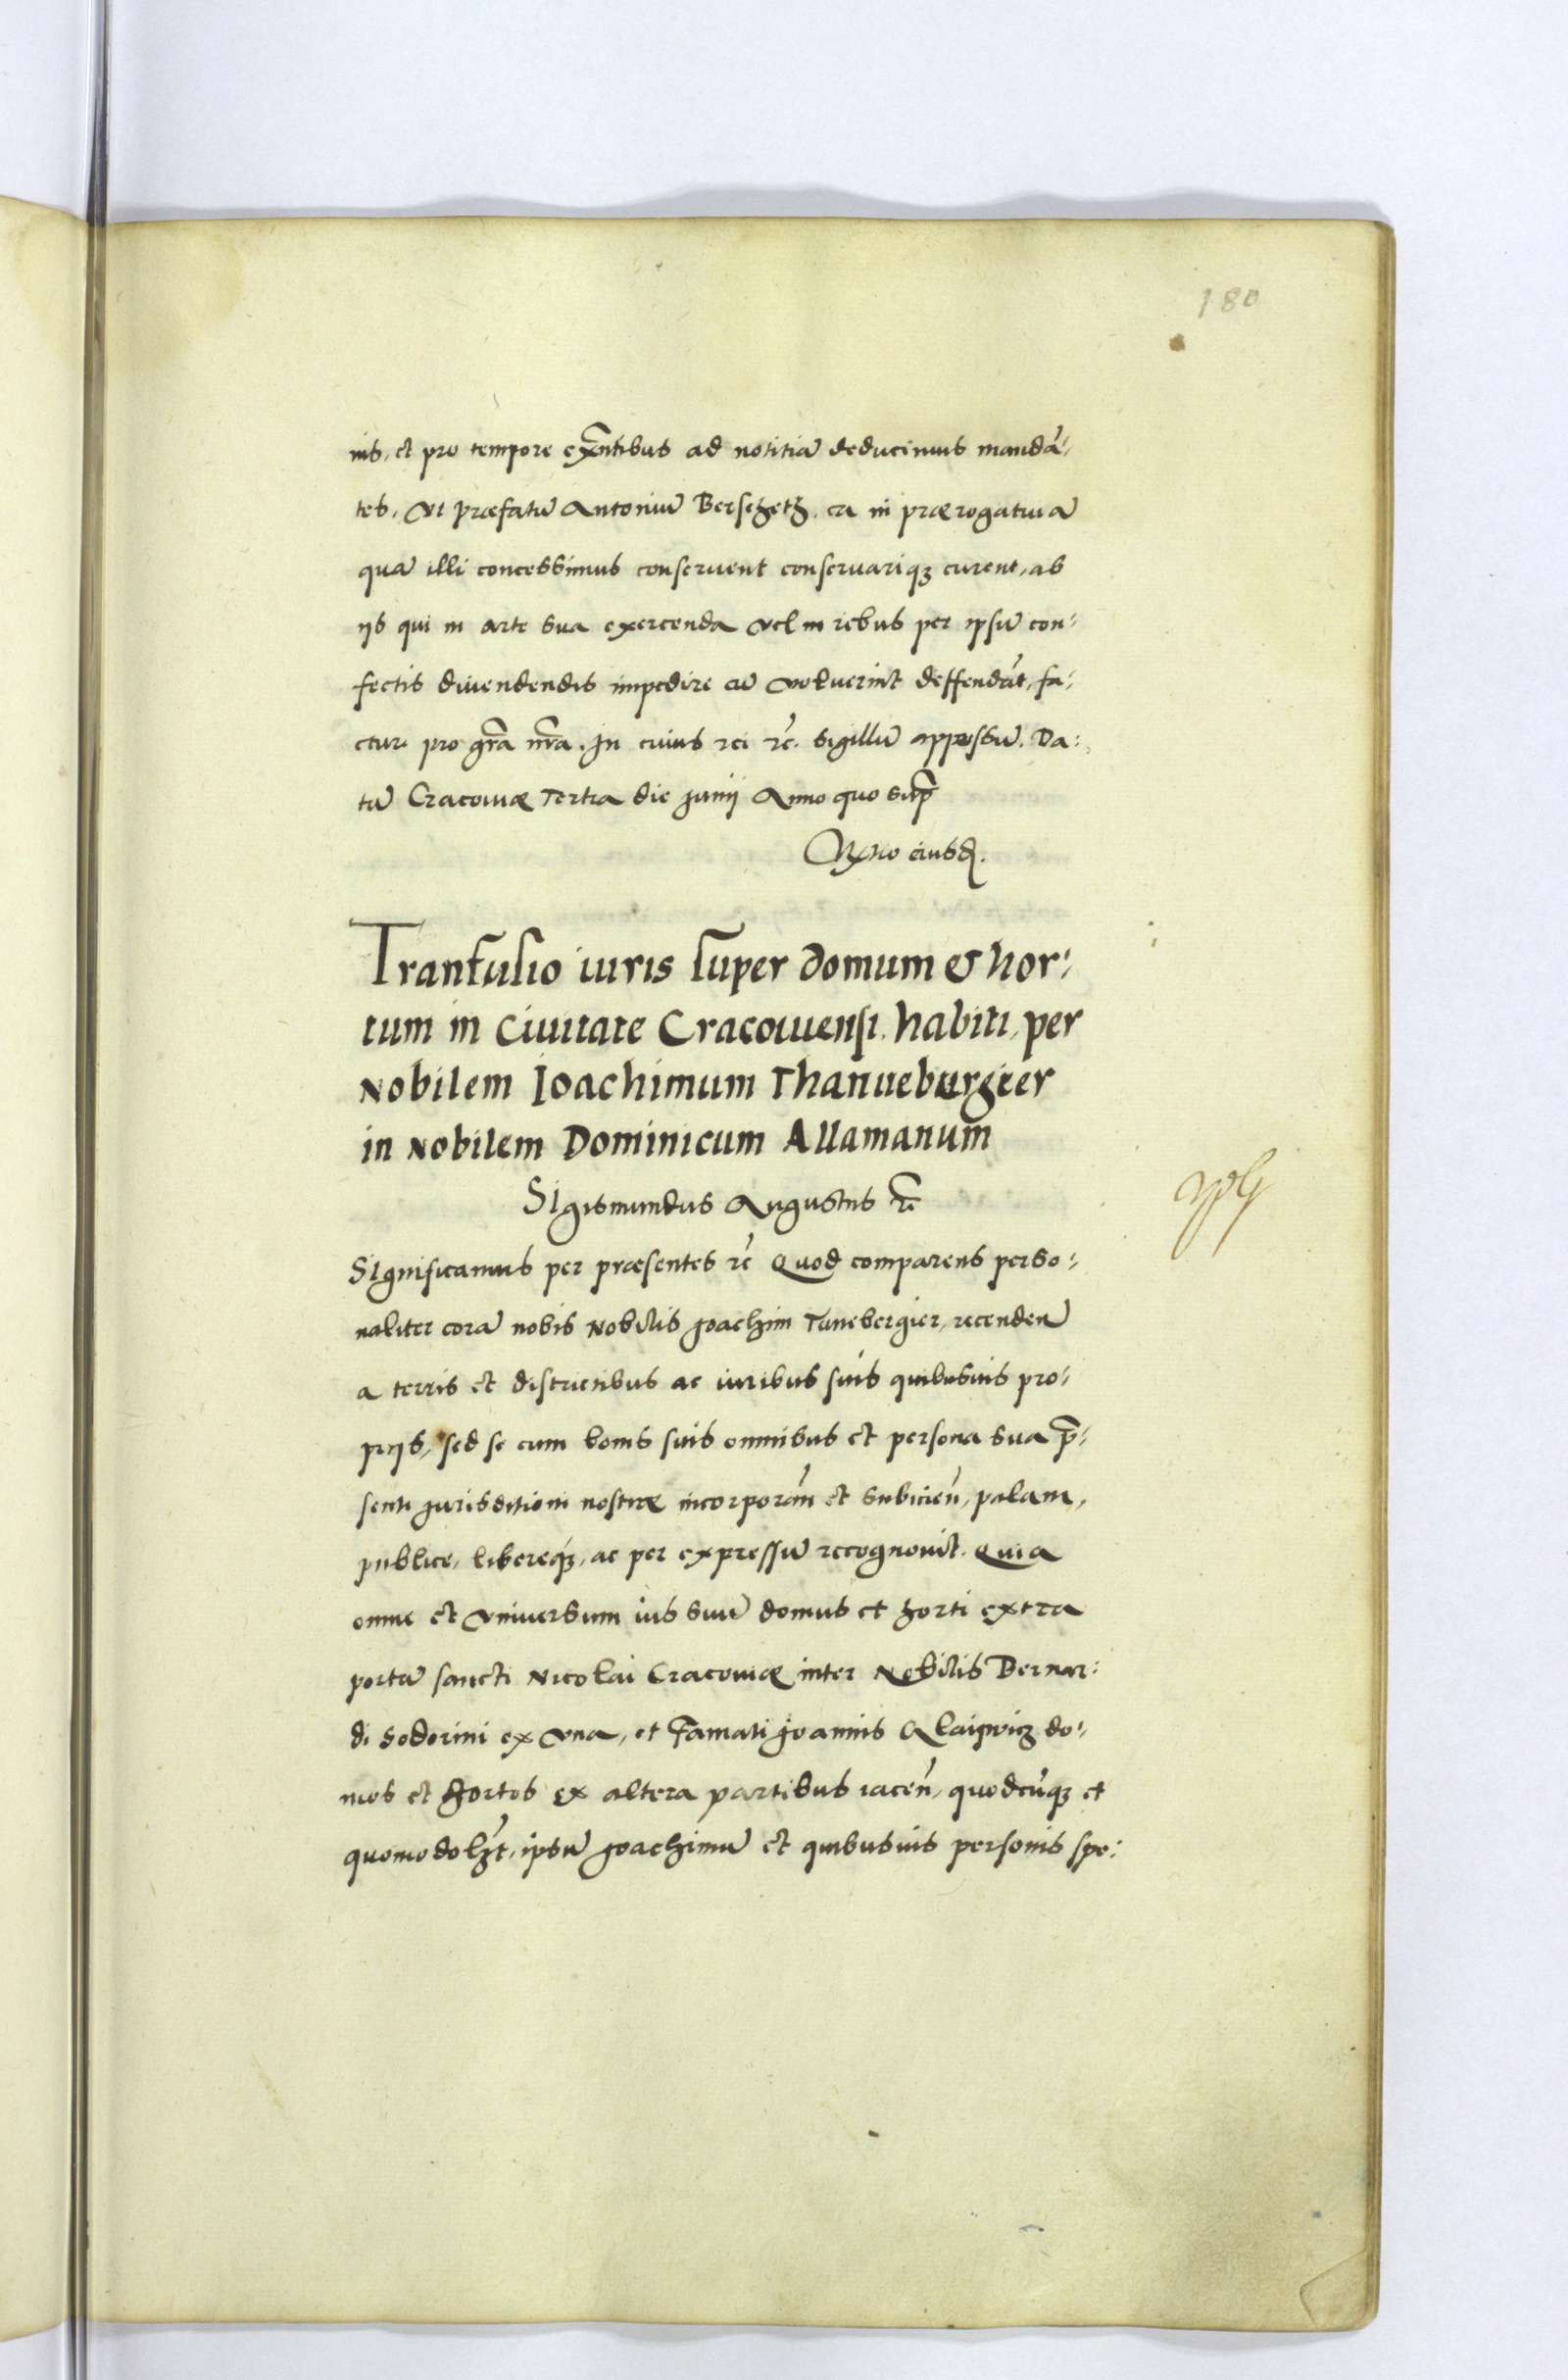 180
nis, et pro tempore exñtibus ad notitiā deducimus mandā-
tes. Ut præfatū Antoniū Bersehetz. ea in prærogatiua
quā illi concessimus conseruent conseruariqꝫ curent, ab
ijs qui in arte sua exercenda vel in rebus per ipsū con-
fectis diuendendis impedire eū voluerint deffendāt, fa-
cturi pro gr̄a nr̄a. In cuius rei rc̄. sigillū appressū. Da-
tū Cracouiæ Tertia die Junij Anno quo sup̄
Rxno eiusd.
Transfusio iuris super domum & hor-
tum in Ciuitate Cracouiensi. habiti, per
Nobilem Ioachimum Thanueburgier
in Nobilem Dominicum Allamanum
Sigismundus Augustus rc̄
Significamus per præsentes rc̄ Quod comparens perso-
naliter corā nobis Nobilis Joachim Tanebergier, recenden̄
a terris et districtibus ac iuribus suis quibusuis pro-
prijs, sed se cum bonis suis omnibus et persona sua p̄-
senti Jurisditioni nostræ incorporan̄ et subicien̄, palam,
publice, libereqꝫ, ac per expressū recognouit. Quia
omne et vniuersum ius suū domus et horti extra
portā sancti Nicolai Cracouiæ inter Nobilis Bernar-
di Soderini ex vna, et Famati Joannis domos
mos et hortos ex altera partibus iacen̄, quodcūqꝫ et
quomodolꝫt, ipsū Joachimū et quibusuis personis spe-